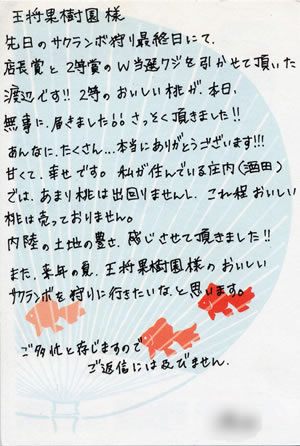 王将果樹園 様
先日のサクランボ狩り最終日にて、
店長賞と2等賞のW当選クジを引かせて頂いた
渡辺です!! 2等のおいしい桃が、本日、
無事に、届きました!!さっそく頂きました!!
あんなに、たくさん…本当にありがとうございます!!!
甘くて、幸せです。私が住んでいる庄内(酒田)
では、あまり桃は出回りませんし、これ程おいしい
桃は売っておりません。
内陸の土地の豊さ、感じさせて頂きました!!
また、来年の夏、王将果樹園様のおいしい
サクランボを狩りに行きたいな、と思います。
ご多忙と存じますので
ご返信には及びません。